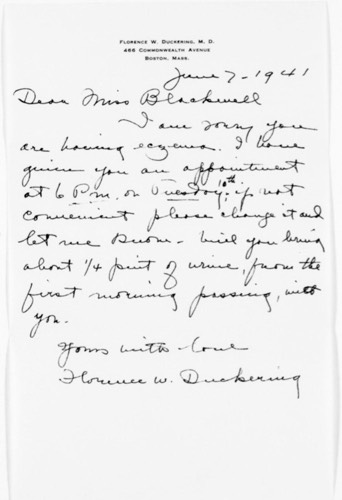 FLORENCE W. DUCKERING, M. D.
466 COMMONWEALTH AVENUE
BOSTON, MASS.
June 7-1941
Dear Miss Blackwell
I am sorry you
are having eczema. I have
given you an appointment
at 6 P.m. on Tuesday 10th; if not
convenient please change it and
let me know - will you bring
about 1/4 pint of urine, from the
first morning passing, with
you.
Yours with love
Florence W. Duckering